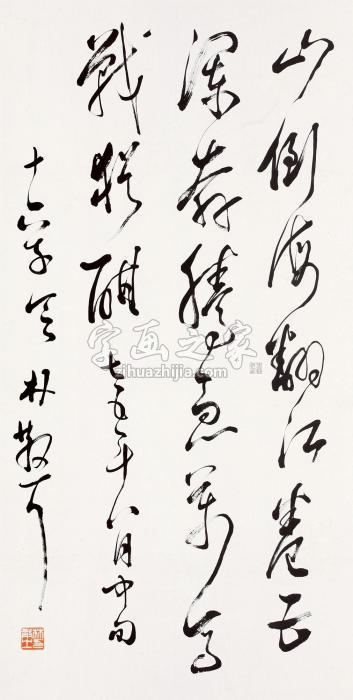 山倒海翻江卷巨
瀾奔騰急萬馬
戰猶酣 七五年八月中旬
十六字令 林散耳
字画之家
zihuazhijia.com